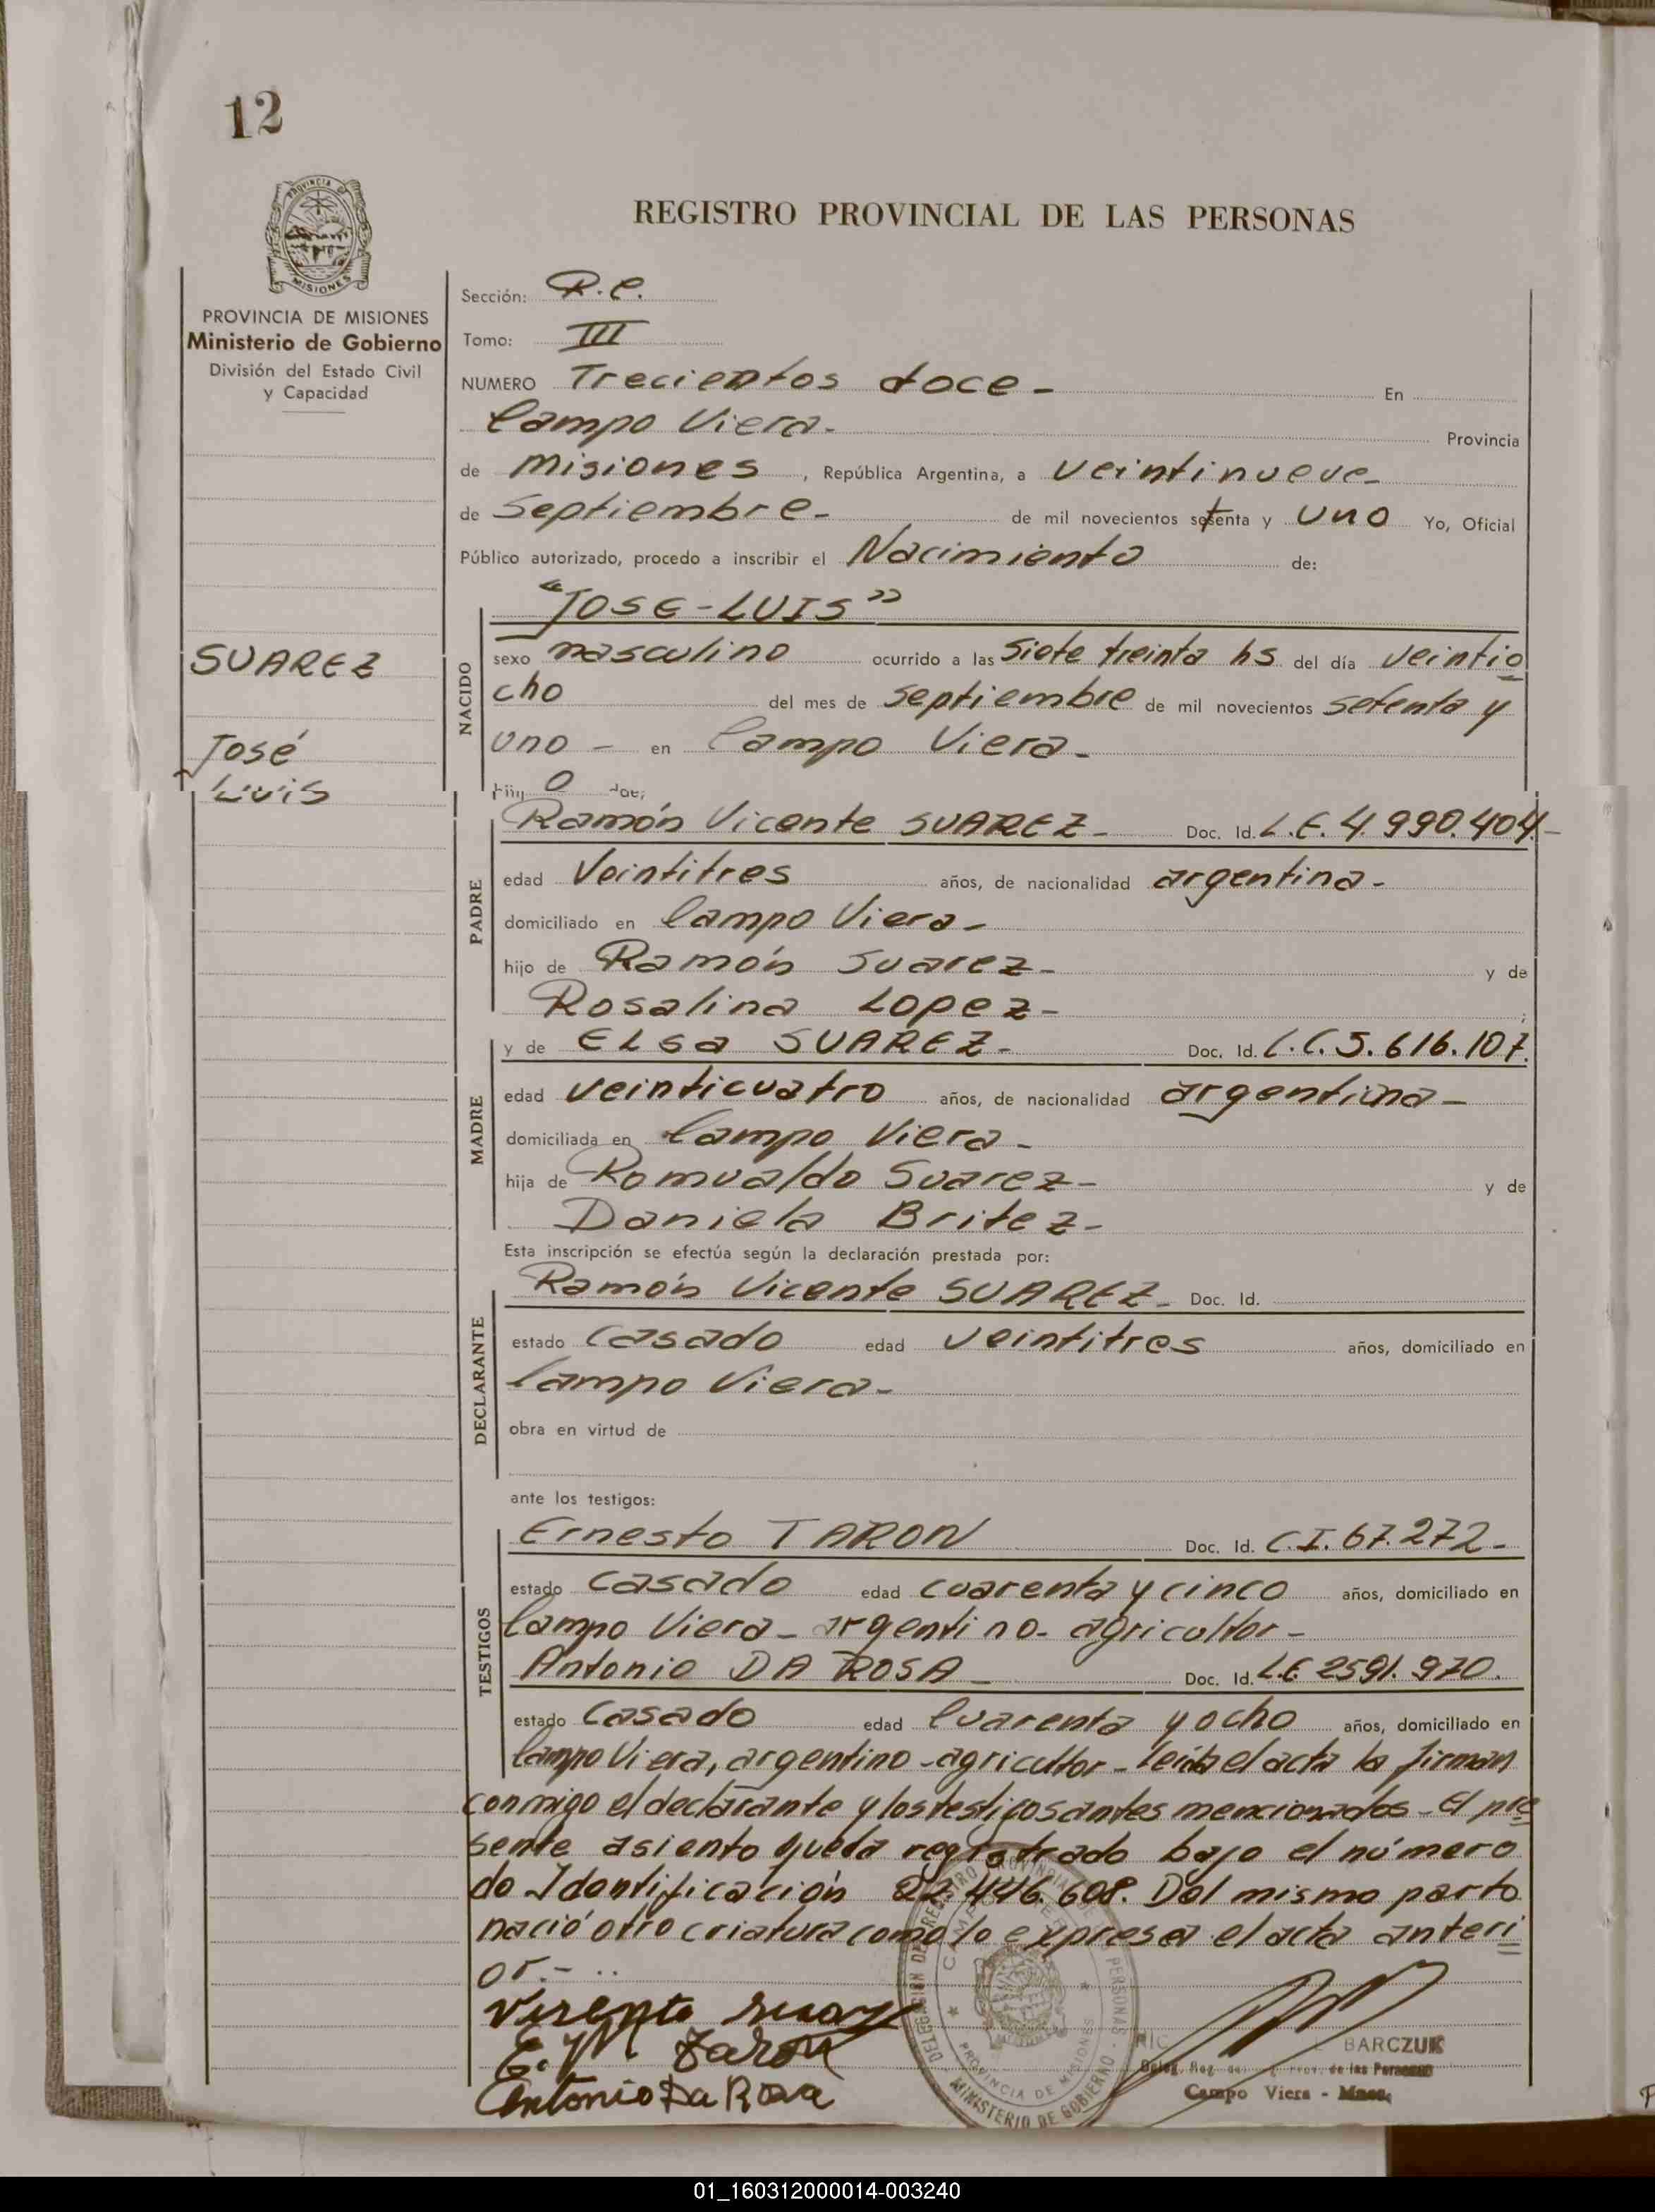 12
PROVINCIA DE
MISIONES
REGISTRO PROVINCIAL DE LAS PERSONAS
PROVINCIA DE MISIONES
Ministerio de Gobierno
División del Estado Civil
y Capacidad
SUAREZ
José
Luis
Sección: R.C.
Tomo: III
NUMERO Trecientos doce - En
Campo Viera - Provincia
de Misiones, República Argentina, a veintinueve -
de Septiembre - de mil novecientos setenta y uno Yo, Oficial
Público autorizado, procedo a inscribir el Nacimiento de:
"JOSE-LUIS"
NACIDO
sexo masculino ocurrido a las siete treinta hs del día veintio
cho del mes de septiembre de mil novecientos setenta y
uno - en Campo Viera -
hijo de;
PADRE
Ramón Vicente SUAREZ - Doc. Id. L.E. 4.990.404 -
edad Veintitres años, de nacionalidad argentina -
domiciliado en Campo Viera -
hijo de Ramón Suarez - y de
Rosalina Lopez - ;
MADRE
y de ELSA SUAREZ - Doc. Id. L.C. 5.616.107.
edad veinticuatro años, de nacionalidad argentina -
domiciliada en Campo Viera -
hija de Romualdo Suarez - y de
Daniela Britez -
Esta inscripción se efectúa según la declaración prestada por:
DECLARANTE
Ramón Vicente SUAREZ - Doc. Id.
estado casado edad veintitres años, domiciliado en
Campo Viera -
obra en virtud de
ante los testigos:
TESTIGOS
Ernesto TARON Doc. Id. C.I. 67.272 -
estado casado edad cuarenta y cinco años, domiciliado en
Campo Viera - argentino - agricultor -
Antonio DA ROSA - Doc. Id. L.E. 2591.970.
estado Casado edad Cuarenta y ocho años, domiciliado en
Campo Viera, argentino - agricultor - Leída el acta la firman
conmigo el declarante y los testigos antes mencionados - El pre
sente asiento queda registrado bajo el número
de Identificación 22.446.608. Del mismo parto
nació otro criatura como lo expresa el acta anteri
or. -
Vicente Suarez
E. Taron
Antonio Da Rosa
DELEGACIÓN DEL REGISTRO PROVINCIAL DE LAS PERSONAS - MINISTERIO DE GOBIERNO
CAMPO VIERA
PROVINCIA DE MISIONES
BARCZUK
Deleg. Reg. Prov. de las Personas
Campo Viera - Mnes.
01_160312000014-003240